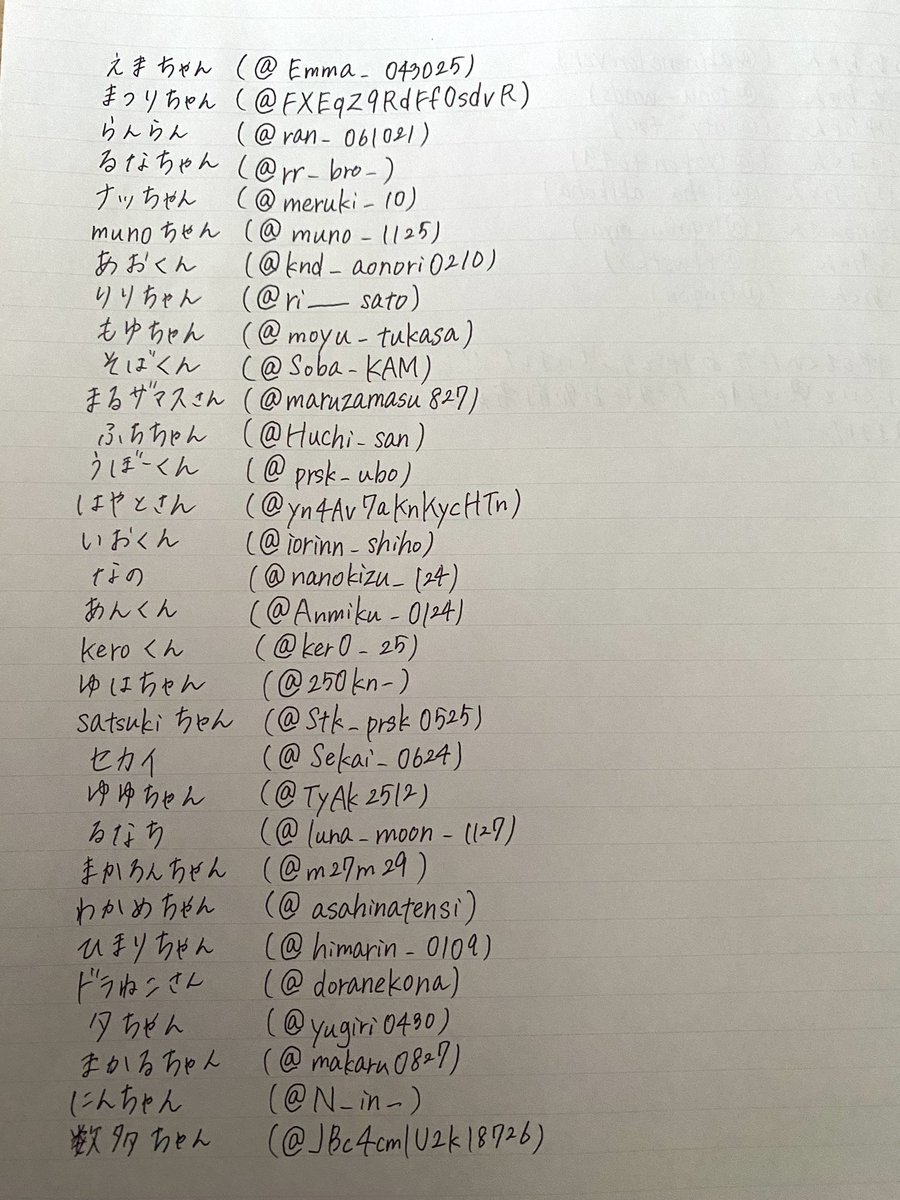 えまちゃん (@Emma_043025)
まつりちゃん (@FXEqZ9RdFfOsdvR)
らんらん (@ran_061021)
るなちゃん (@rr_bro_)
ナッちゃん (@meruki_10)
munoちゃん (@muno_1125)
あおくん (@knd_aonori0210)
りりちゃん (@ri___sato)
もゆちゃん (@moyu_tukasa)
そばくん (@Soba_KAM)
まるザマスさん (@maruzamasu827)
ふちちゃん (@Huchi_san)
うぼーくん (@prsk_ubo)
はやとさん (@yn4Av7aKnKycHTn)
いおくん (@iorinn_shiho)
なの (@nanokizu_124)
あんくん (@Anmiku_0124)
keroくん (@ker0_25)
ゆはちゃん (@250kn_)
satsukiちゃん (@Stk_prsk0525)
セカイ (@Sekai_0624)
ゆゆちゃん (@TyAk2512)
るなち (@luna_moon_1127)
まかろんちゃん (@m27m29)
わかめちゃん (@asahinatensi)
ひまりちゃん (@himarin_0109)
ドラねこさん (@doranekona)
夕ちゃん (@yugiri0430)
まかるちゃん (@makaru0827)
にんちゃん (@N_in_)
数多ちゃん (@JBc4cm1U2k18726)